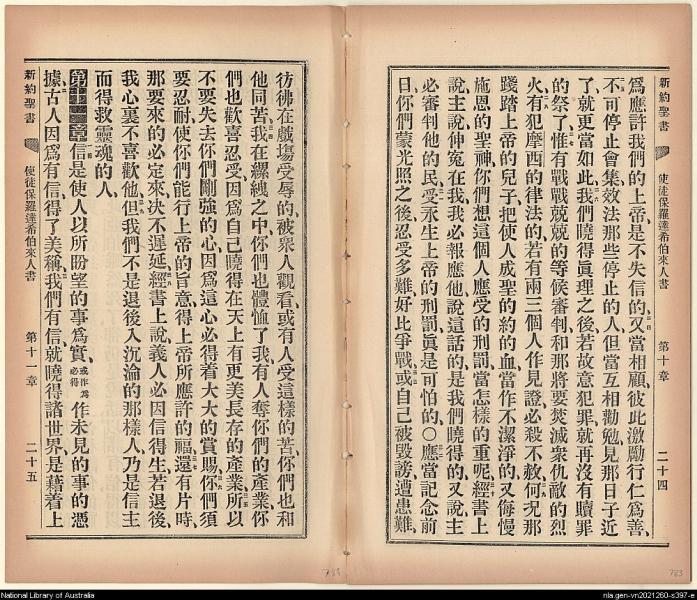 新約聖書
使徒保羅達希伯來人書
第十章
二十四
爲應許我們的上帝是不失信的、又當相顧、彼此激勵行仁爲善、
不可停止會集、效法那些停止的人、但當互相勸勉、見那日子近
了、就更當如此、我們曉得眞理之後、若故意犯罪、就再沒有贖罪
的祭了、惟有戰戰兢兢的等候審判、和那將要焚滅衆仇敵的烈
火、有犯摩西的律法的、若有兩三個人作見證、必殺不赦、何況那
踐踏上帝的兒子、把使人成聖的約的血當作不潔淨的、又侮慢
施恩的聖神、你們想這個人應受的刑罰、當怎樣的重呢、經書上
說、主說、伸寃在我、我必報應、他說這話的、是我們曉得的、又說、主
必審判他的民、受永生上帝的刑罰、眞是可怕的、○應當記念前
日、你們蒙光照之後、忍受多難、好比爭戰、或自己被毀謗遭患難、
彷彿在戲塲受辱的、被衆人觀看、或有人受這樣的苦、你們也和
他同苦、我在縲絏之中、你們也體恤了我、有人奪你們的產業、你
們也歡喜忍受、因爲自己曉得在天上有更美長存的產業、所以
不要失去你們剛強的心、因爲這心必得着大大的賞賜、你們須
要忍耐、使你們能行上帝的旨意、得上帝所應許的福、還有片時、
那要來的必定來、決不遲延、經書上說、義人必因信得生、若退後、
我心裏不喜歡他、但我們不是退後入沉淪的那樣人、乃是信主
而得救靈魂的人、
第十一章 信是使人以所盼望的事爲實、或作爲必得 作未見的事的憑
據、古人因爲有信、得了美稱、我們有信、就曉得諸世界、是藉着上
新約聖書
使徒保羅達希伯來人書
第十一章
二十五
National Library of Australia
nla.gen-vn2021260-s397-e